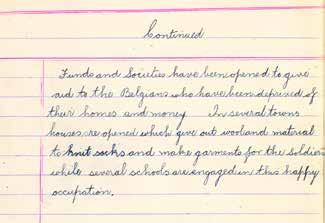 Continued
Funds and Societies have been opened to give
aid to the Belgians who have been deprived of
their homes and money. In several towns
houses are opened which give out wool and material
to knit socks and make garments for the Soldiers
while several schools are engaged in this happy
occupation.